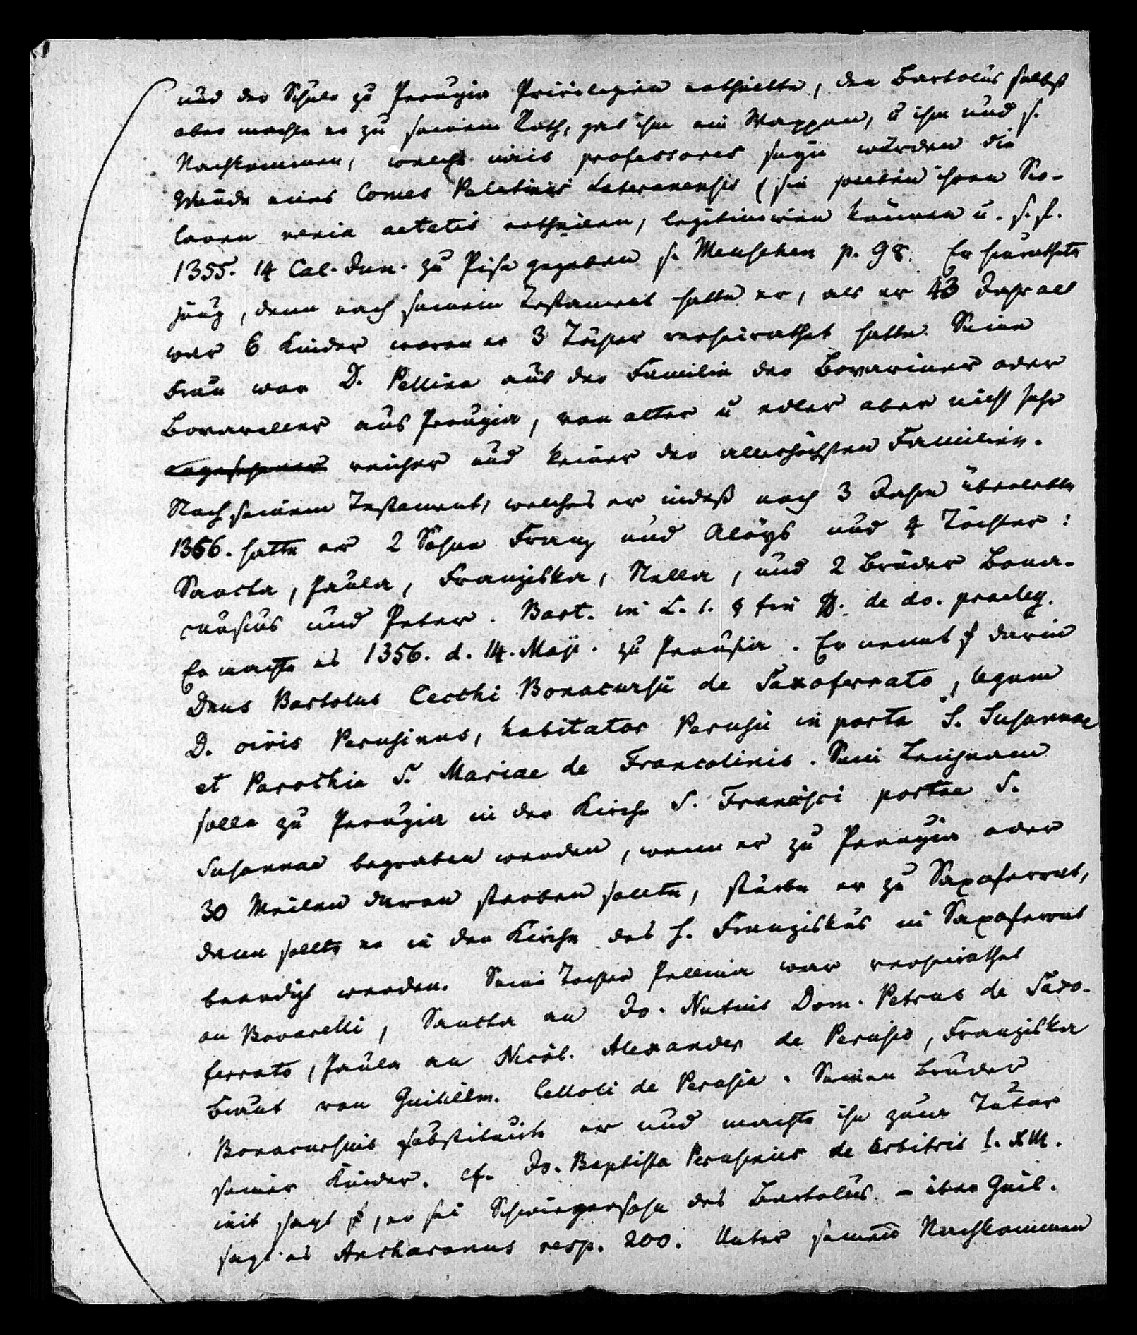 und der Schule zu Perugia Privilegien ertheilte, den Bartolus selbst
aber machte er zu seinem Rath, gab ihm ein Wappen, u ihm und s.
Nachkommen, welche iuris professores seyn würden die
Würde eines Comes Palatinus Lateranensis (sie ihren Sco-
laren venia aetatis ertheilen, legitimiren können u. s. f.
1355. 14 Cal. Jun. zu Pisa gegeben s. Menschen p. 98. Er heurathete
jung, denn nach seinem Testament hatte er, als er 43 Jahr alt
war 6 Kinder wovon er 3 Töchter verheirathet hatte. Seine
Frau war D. Pellina aus der Familie der Bovariner oder
Bovareller aus Perugia, von alter u edler aber nicht sehr
reicher und keiner der allerhöchsten Familien.
Nach seinem Testament, welches er indeß noch 3 Jahre überlebte
1356. hatte er 2 Söhne Franz und Aloys und 4 Töchter:
Sancta, Paula, Franziska, Nella, und 2 Brüder Bona-
cursius und Peter. Bart. in L. 1. § fin ff. de do. praeleg.
Er machte es 1356. d. 14. Maji. zu Perusia. Er nennt s darin
Dnus Bartolus Cecchi Bonacursii de Saxoferrato, legum
D. civis Perusinus, habitator Perusii in porta S. Susannae
et Parochia S. Mariae de Francolinis. Sein Leichnam
solle zu Perugia in der Kirche S. Francisci portae S.
Susannae begraben werden, wenn er zu Perugia oder
30 Meilen davon sterben sollte, stürbe er zu Saxoferrat,
dann sollte er in der Kirche des h. Franziskus in Saxoferrat
beerdigt werden. Seine Tochter Pellina war verheirathet
an Bovarelli, Sancta an Jo. Nutius Dom. Petrus de Saxo-
ferrato, Paula an Nicol. Alexander de Perusio, Franziska
Braut von Guilielm. Celloli de Perusia. Seinen Bruder
Bonacursius substituirte er und machte ihn zum Tutor
seiner Kinder. cf. Jo. Baptista Perusinus de Arbitris l. XIII.
mit sagt, er sei Schwiegersohn des Bartolus. – iber Guil.
sagt es Ancharanus resp. 200. Unter seinen Nachkommen